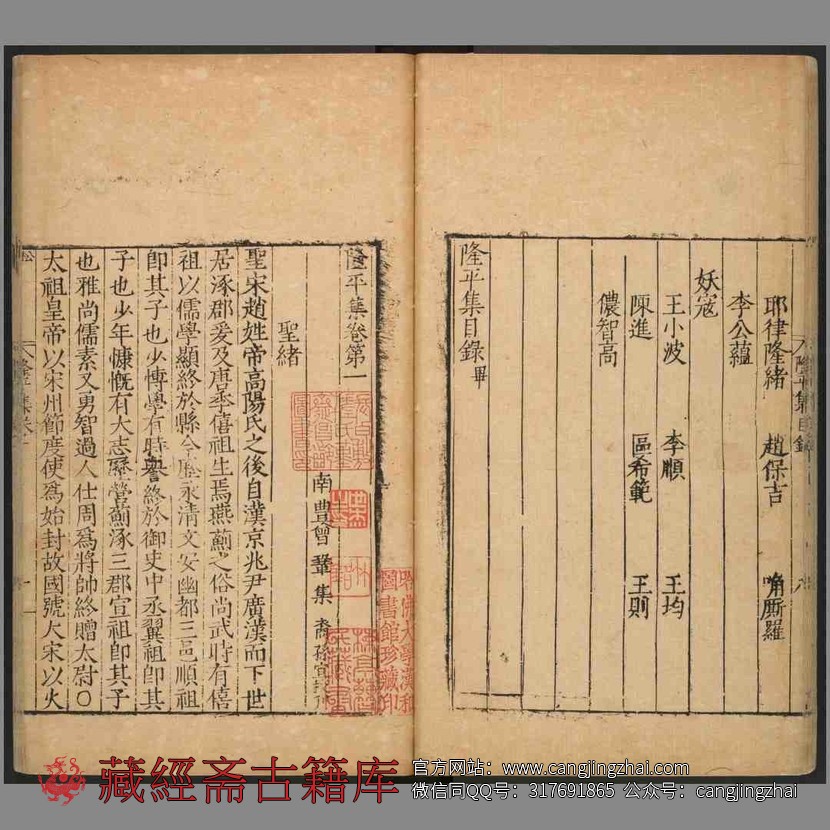 耶律隆緒 趙保吉 唃厮羅
李公蘊
妖寇
王小波 李順 王均
陳進 區希範 王則
儂智高
隆平集目錄畢
隆平集卷第一
南豊曾鞏集
聖緒
聖宋趙姓帝高陽氏之後自漢京兆尹廣漢而下世
居涿郡爰及唐季僖祖生焉燕薊之俗尚武時有僖
祖以儒學顯終於縣令歷永清文安幽都三邑順祖
卽其子也少博學有時譽終於御史中丞翼祖卽其
子也少年慷慨有大志歷營薊涿三郡宣祖卽其子
也雅尚儒素又勇智過人仕周爲將帥終贈太尉○
太祖皇帝以宋州節度使爲始封故國號大宋以火
藏經斋古籍库
官方网站：www.cangjingzhai.com
微信同QQ号：317691865 公众号：cangjingzhai